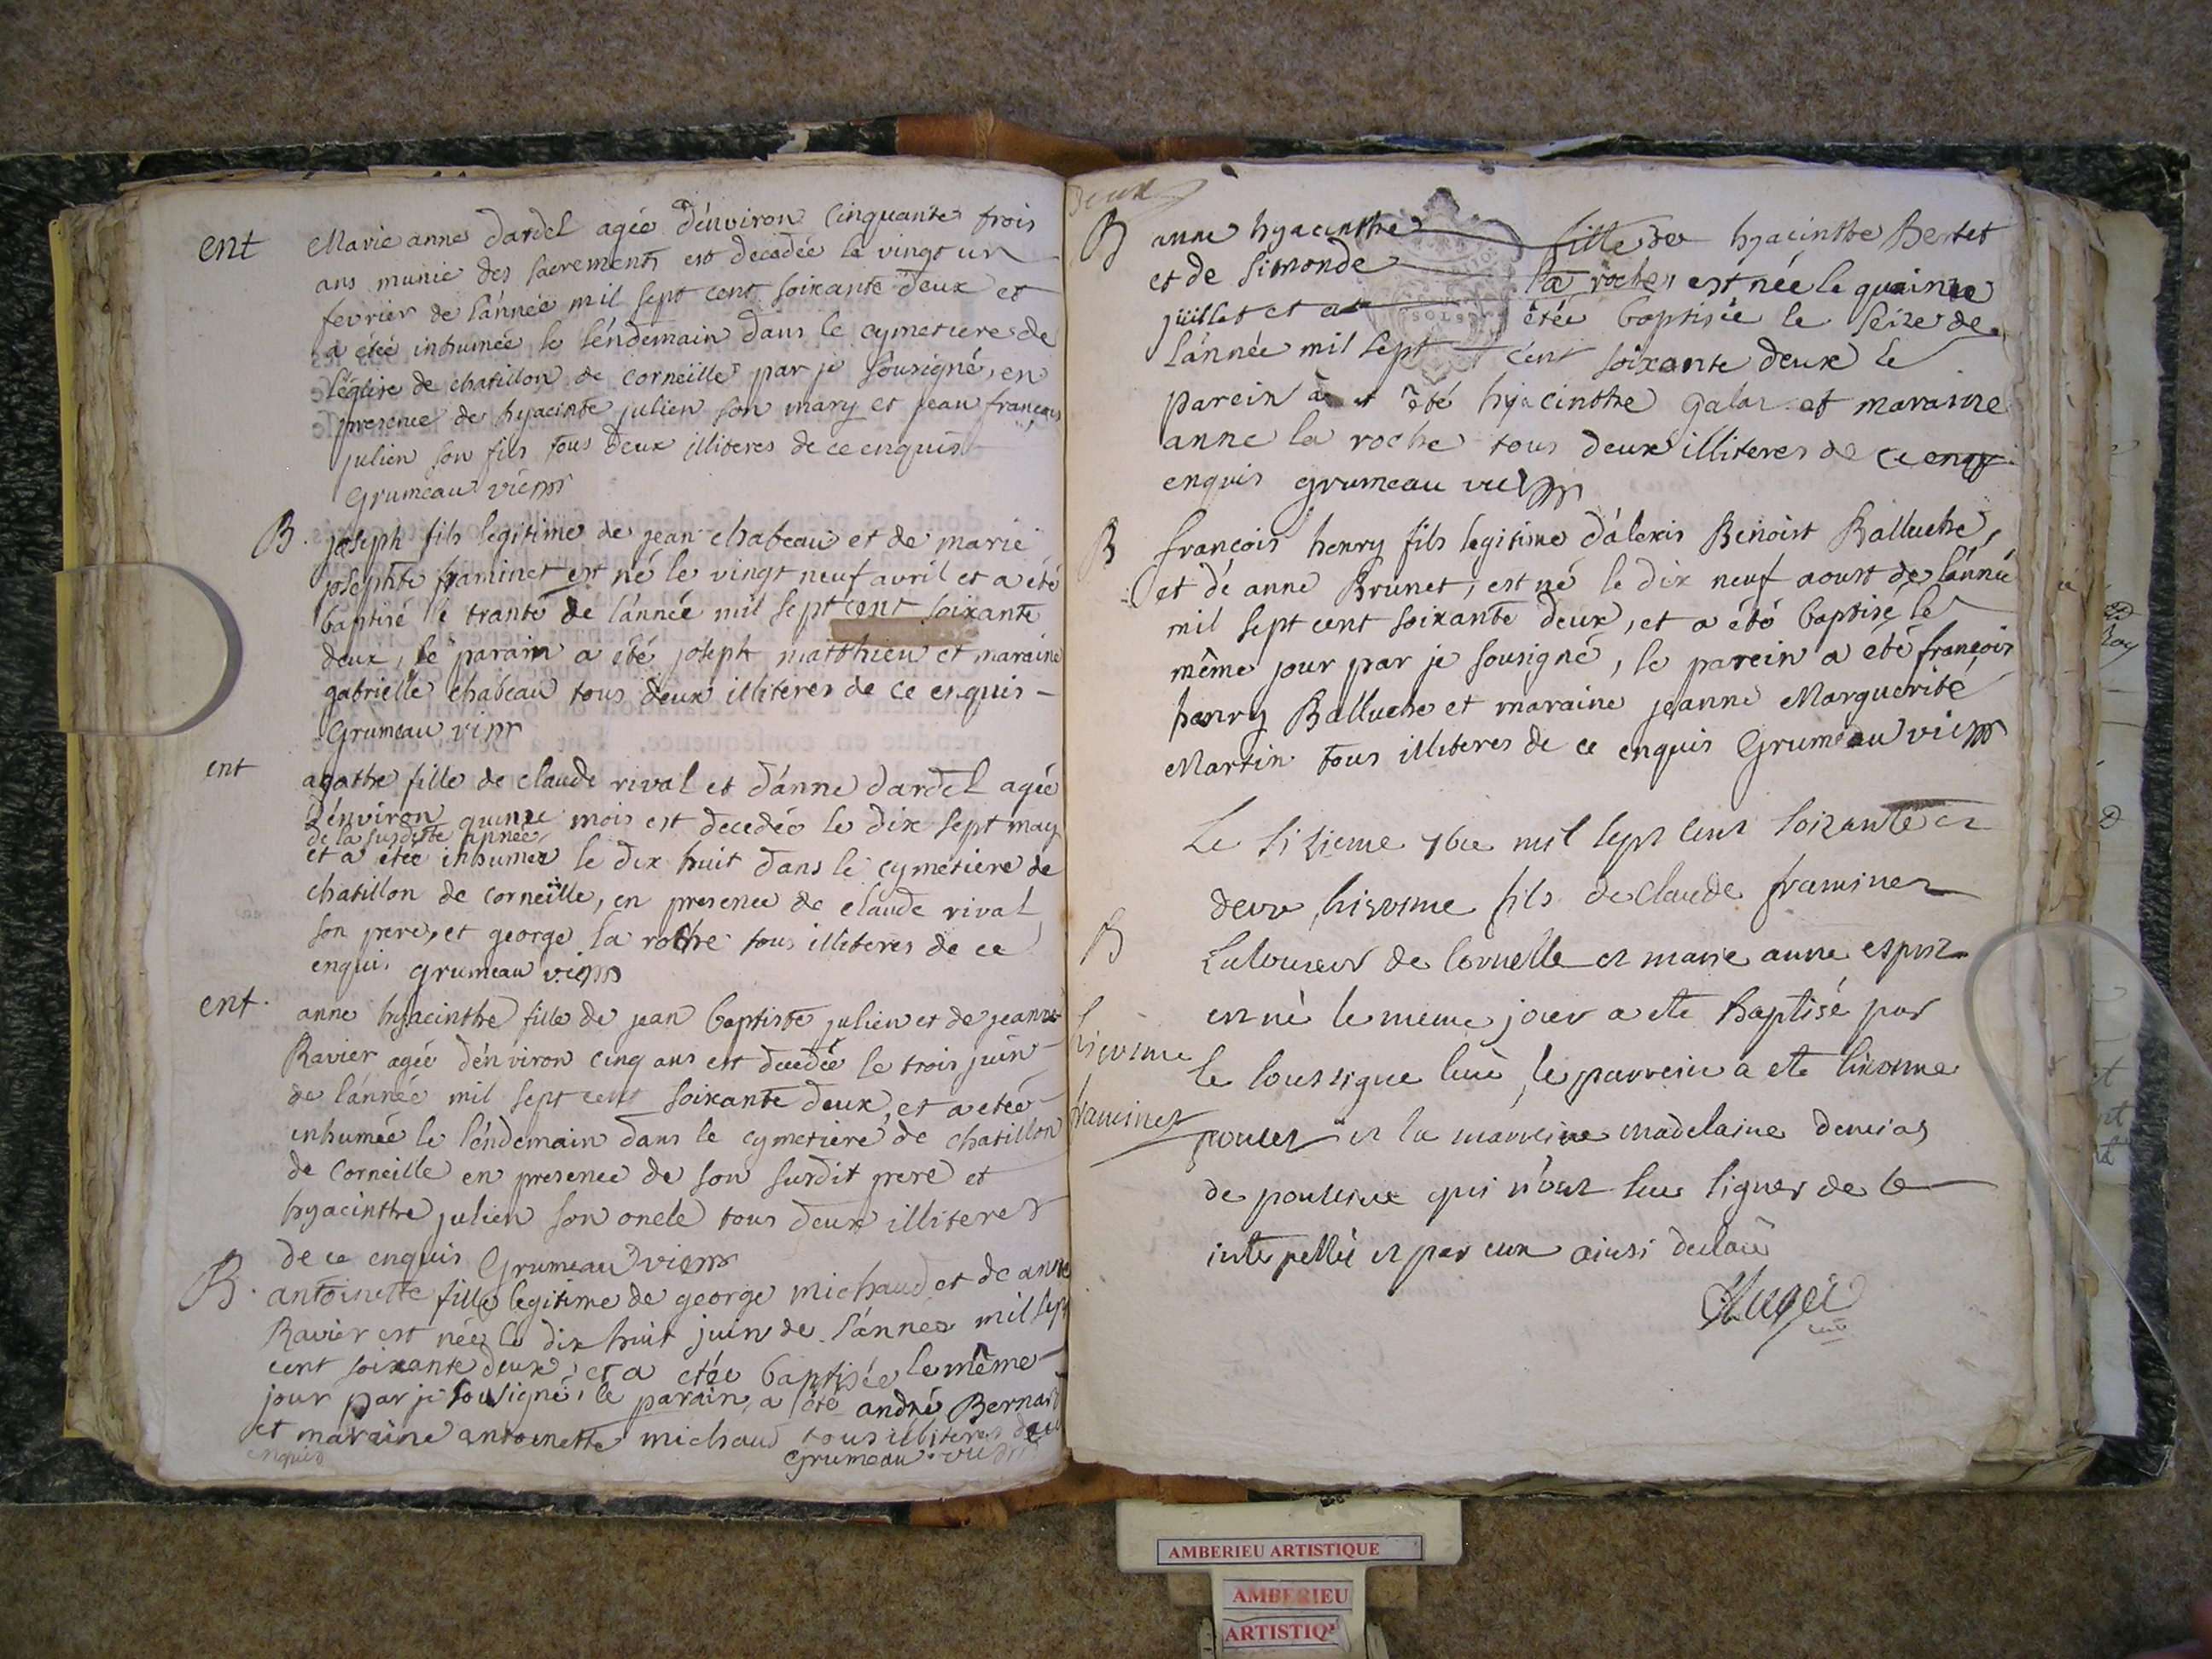 ent
Marie anne dardel agée d'énviron Cinquante trois
ans munie des sacrements est decedée le vingt un
fevrier de l'ánnée mil sept cent soixante deux et
a etéé inhumée le léndemain dans le cymetiere de
l'église de chatillon de corneille par je sousigné, en
presence de hyacinte julien son mary et jean françois
julien son fils tous deux illiteres de ce enquis
Grumeau vic
B. joseph fils legitime de jean chabeau et de marie
josephte framinet est né le vingt neuf avril et a été
baptisé le trante de l'ánnée mil sept cent soixante
deux, le parain a été joseph matthieu et maraine
gabrielle chabeau tous deux illiteres de ce enquis -
Grumeau vic
ent
agathe fille de claude rival et d'ánne dardel agée
d'énviron quinze mois est decedée le dix sept may
de la susditte année
et a etéé inhumée le dix huit dans le cymetiere de
chatillon de corneille, en presence de claude rival
son pere, et george la roche tous illiteres de ce
enquis grumeau vic
ent.
anne hyacinthe fille de jean baptiste julien et de jeanne
Ravier agée d'énviron cinq ans est decedée le trois juin
de l'ánnée mil sept cent soixante deux, et a etéé
inhumée le léndemain dans le cymetiere de chatillon
de Corneille en presence de son susdit pere et
hyacinthe julien son oncle tous deux illiteres
de ce enquis Grumeau vic
B. antoinette fille legitime de george michaud et de anne
Ravier est née le dix huit juin de l'ánnée mil sept
cent soixante deux, et a etéé baptisée le même
jour par je sousigné, le parain, a été andré Bernard
et maraine antoinette michaud tous illiteres de ce
enquis Grumeau vic
Deux
B anne hyacinthe fille de hyacinthe Bertet
et de Simonde la roche, est née le quainze
juillet et a étée baptisée le seize de
l'ánnée mil sept cent soixante deux le
parein a été hyacinthe galar et maraine
anne la roche tous deux illiteres de ce enqu
enquis grumeau vic
B françois henry fils legitime d'álexis Benoist Balluche,
et dé anne Brunet, est né le dix neuf aoust de l'ánnée
mil sept cent soixante deux, et a été baptisé le
même jour par je sousigné, le parein a été françois
henry Balluche et maraine jeanne Marguerite
Martin tous illiteres de ce enquis Grumeau vic
Le sizieme 7bre mil sept cent soixante et
deux hierosme fils de Claude framinet
B
Laboureur de Corneille et marie anne esprit
et né le meme jour a ete Baptisé par
hierosme
le soussigné curé, le parrein a ete hierosme
framinet
poncet et la marreine madelaine
de ponsieux qui n'ont sceu signer de ce
interpellés et par eux ainsi declaré
Auger
curé
AMBERIEU ARTISTIQUE
AMBERIEU
ARTISTIQ